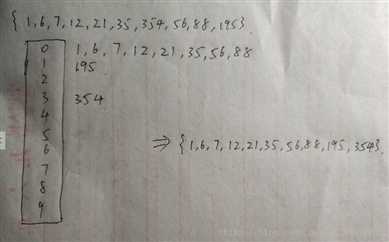 { 1, 6, 7, 12, 21, 35, 354, 56, 88, 195}
0 1, 6, 7, 12, 21, 35, 56, 88
1 195
2
3 354
4
5
6 ⇒ {1, 6, 7, 12, 21, 35, 56, 88, 195, 354}
7
8
9